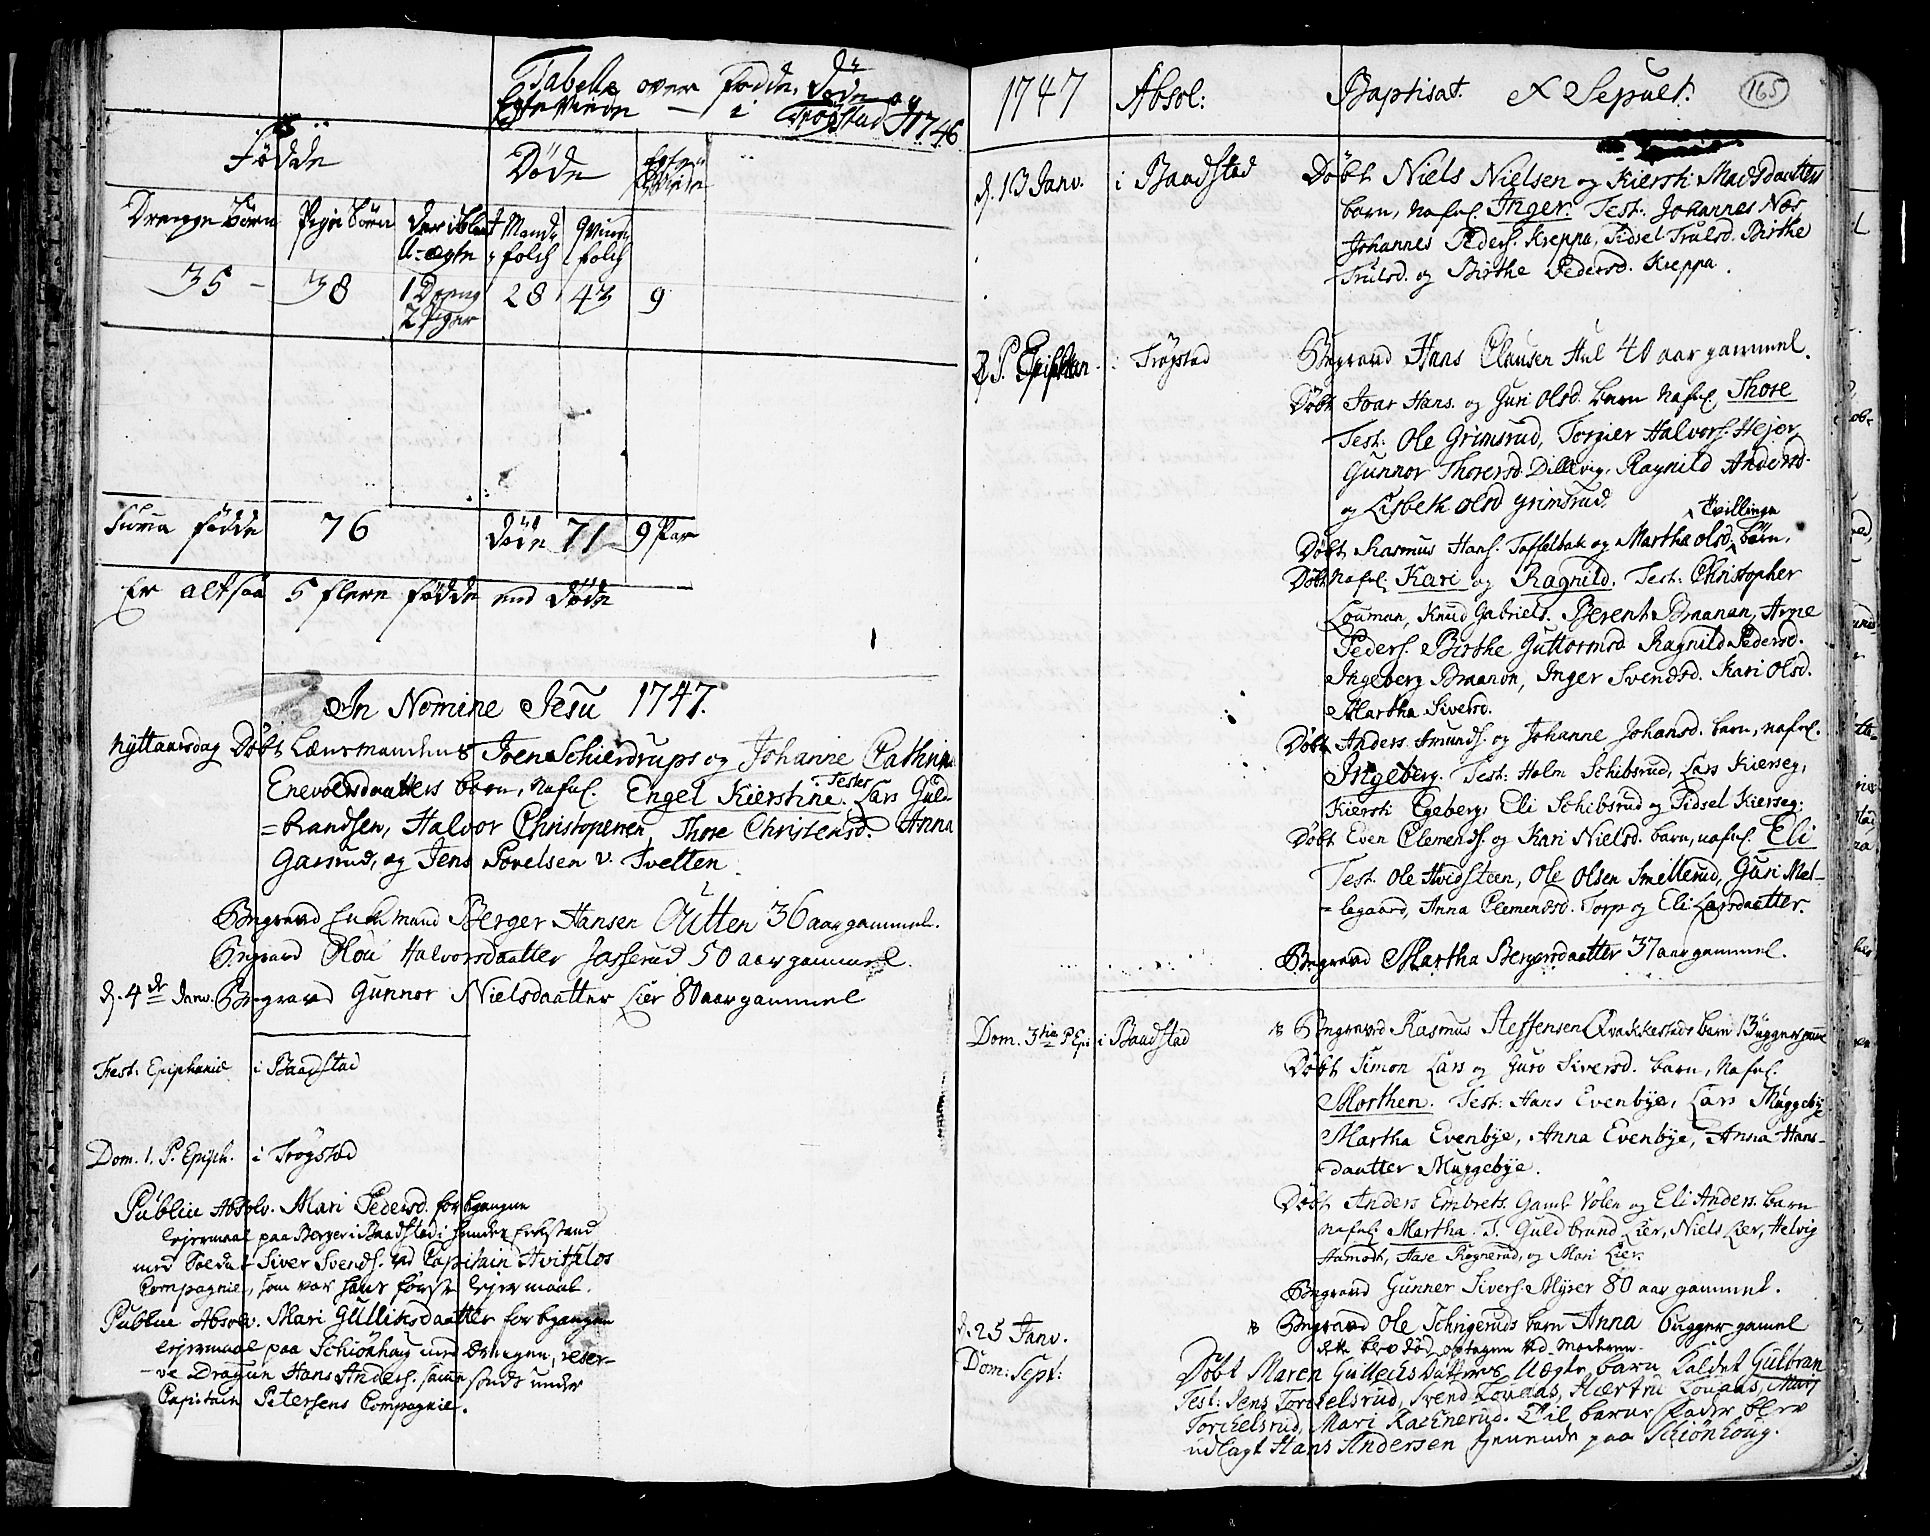 Tabelle over fødde, døde og
Egteviede — i Trøgstad A 1746
Fødde
Døde
Egte
viede
Drenge børn
Pige børn
der iblant
U-ægte
Mand-
folch
Qvin-
folch
35 —
38
1 Dreng
2 Piger
28
43
9
Suma fødde
76
døde
71
9 Par
Er altsaa 5 flere fødde end døde
In Nomine Jesu 1747.
Nyttaarsdag Døbt Lænsmandens Joen Schierdrups og Johanne Cathrine
Enevoldsdaatters barn, nafnl. Engel Kierstine. Testes Lars Gul-
=brandsen, Halvor Christopersen, Thore Christensd. Anna
Gasrud, og Jens Povelsen v. Tvetten.
Begraved Enkemand Berger Hansen Outten 36 aar gammel.
Begraved Olou Halvorsdaatter Jasserud 50 aar gammel.
d. 4de Janv. Begraved Gunnor Nielsdaatter Lier 80 aar gammel
Fest: Epiphaniæ i Baadstad
Dom. 1. P. Epiph. i Trøgstad
Publice Absolv. Mari Pedersd. for begangne
leyermaal paa Berger i Baadstad i hendes Enkestand
med Soldat Siver Svends. ved Capitain Hvitfelds
Compagnie, som var hans første leyermaal.
Publice Absolv. Mari Gulliksdaatter for begangen
leyermaal paa Schiönhoug med drengen, reser-
ve Dragun Hans Anders. samme steds under
Capitain Petersens Compagnie.
1747 Absol: Baptisat. & Sepult. 165
d. 13 Janv. i Baadstad Døbt Niels Nielsen og Kiersti Madsdaatters
barn, nafnl. Inger. Test: Johannes Næs
Johannes Peders. Kreppa, Sidsel Trulsd. Birthe
Trulsd. og Birthe Pedersd. Kreppa.
2 P. Epiphan i Trøgstad Begraved Hans Clausen Hul 40 aar gammel.
Døbt Ivar Hans. og Guri Olsd. barn nafnl. Thore
Test: Ole Grimsrud, Torgier Halvors. Hejer,
Gunnor Thorersd. Dillevig, Ragnild Andersd.
og Lisbeth Olsd Grimsrud
Døbt Rasmus Hans. Toffelbak og Martha Olsd tvillinge børn.
Døbt Nafnl. Kari og Ragnild. Test: Christopher
Louman, Knud Gabriels. Berent Braanan, Arne
Peders. Birthe Guttormsd Ragnild Pedersd.
Ingeberg Braanan, Inger Svendsd. Kari Olsd.
Martha Siversd.
Døbt Anders Amunds. og Johanne Johansd. barn, nafnl.
Ingeberg. Test: Holm Schibsrud, Lars Kierseg,
Kiersti Egeberg, Eli Schibsrud og Sidsel Kierseg:
Døbt Even Clemends. og Kari Nielsd. barn, nafnl. Eli
Test: Ole Hvidsteen, Ole Olsen Smellerud, Guri Mel-
=legaard, Anna Clemendsd. Torp og Eli Larsdaatter.
Begraved Martha Bergersdaatter 37 aar gammel.
Dom. 3tia P Epi i Baadstad Begraved Rasmus Steffensen Qvakkestads barn 13 ugger gam̄el
Døbt Simon Lars og Guro Siversd. barn, Nafnl.
Morthen. Test: Hans Evenbye, Lars Muggebye
Martha Evenbye, Anna Evenbye, Anna Hans-
daatter Muggebye.
Døbt Anders Embrets. Gaml Volen og Eli Anders. barn
Nafnl. Martha. T. Guldbrand Lier, Niels Lier, Helvig
Hamodt, Aase Rognerud, og Mari Lier.
Begraved Gunner Sivers. Myser 80 aar gammel.
d. 25 Janv. Begraved Ole Schrigeruds barn Anna 6 ugger gamel
dette blev død optagen ved Moderen.
Dom: Sept: Døbt Maren Gullechs datters Uægte barn kaldet Gulbran
Test: Jens Torchelsrud, Svend Louaas, Siertru Louaas, Mari
Torchelsrud, Mari Rachnerud. Til barne fader blev
udlagt Hans Andersen tienende paa Schiönhoug.